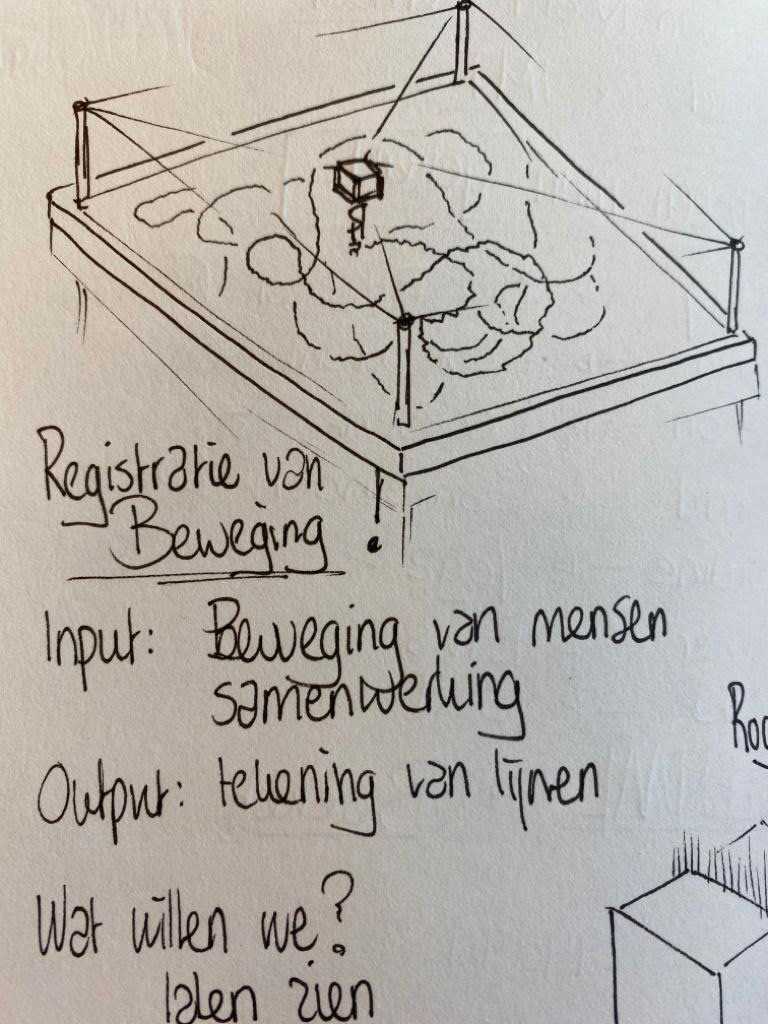 Registratie van
Beweging
Input: Beweging van mensen
samenwerking
Output: tekening van lijnen
Wat willen we?
laten zien